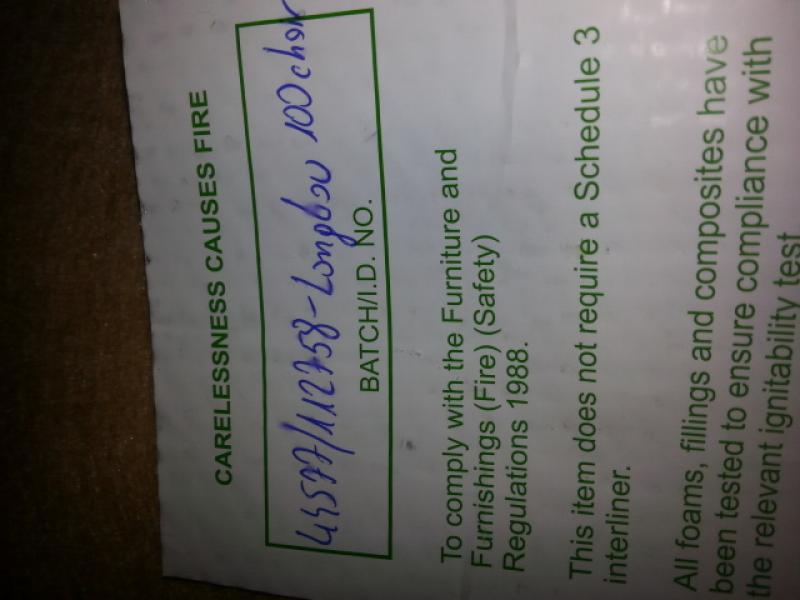 CARELESSNESS CAUSES FIRE
44577/112758-Longbow 100
BATCH/I.D. NO.
To comply with the Furniture and
Furnishings (Fire) (Safety)
Regulations 1988.
This item does not require a Schedule 3
interliner.
All foams, fillings and composites have
been tested to ensure compliance with
the relevant ignitability test